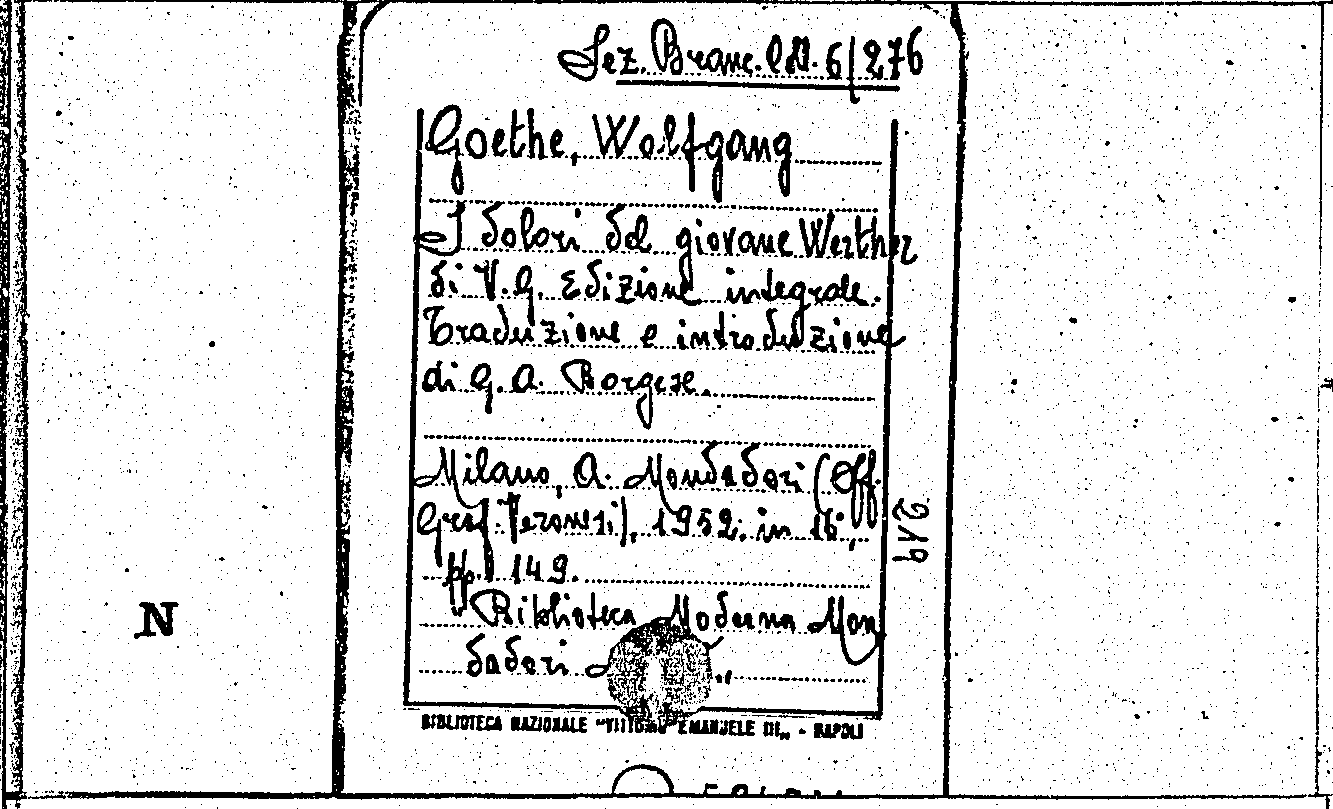 Sez. Branc. 6/276
Goethe, Wolfgang
I dolori del giovane Werther
di V. G. Edizione integrale.
Traduzione e introduzione
di G. A. Borgese.
Milano, A. Mondadori (Off.
Graf. Veronesi), 1952. in 16°,
pp. 149.
Biblioteca Moderna Mon
dadori
219
BIBLIOTECA NAZIONALE "VITTORIO EMANUELE III„ - NAPOLI
N